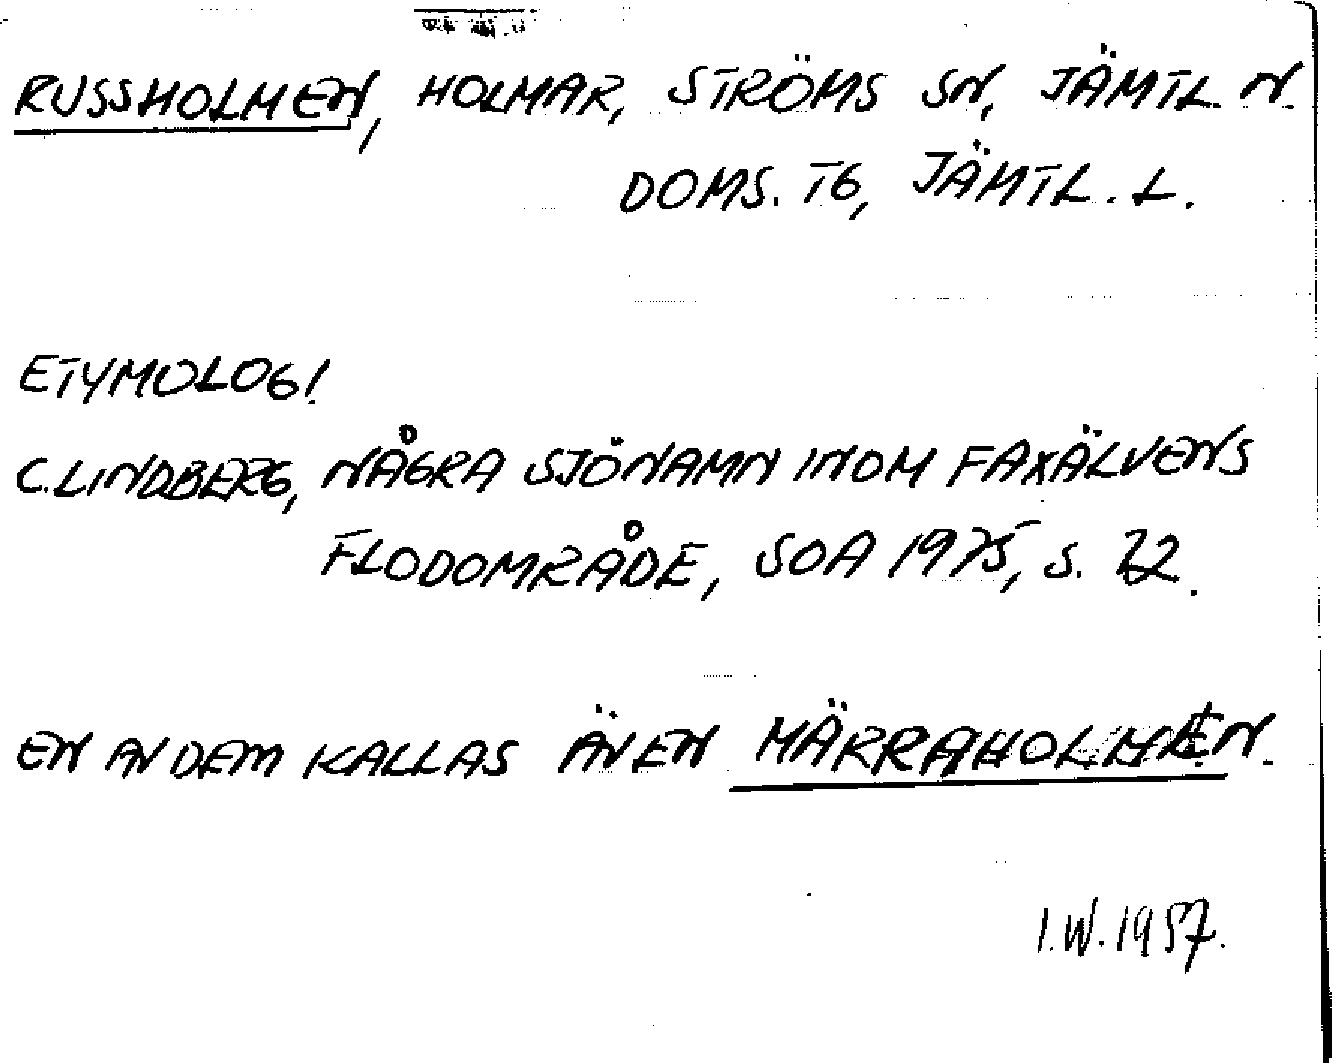 RUSSHOLMEN, HOLMAR, STRÖMS SN, JÄMTL. N.
DOMS. TG, JÄMTL. L.
ETYMOLOGI.
C. LINDBERG, NÅGRA SJÖNAMN INOM FAXÄLVENS
FLODOMRÅDE, SOA 1975, S. 72.
EN AV DEM KALLAS ÄVEN MÄRRAHOLMEN.
I.W. 1957.